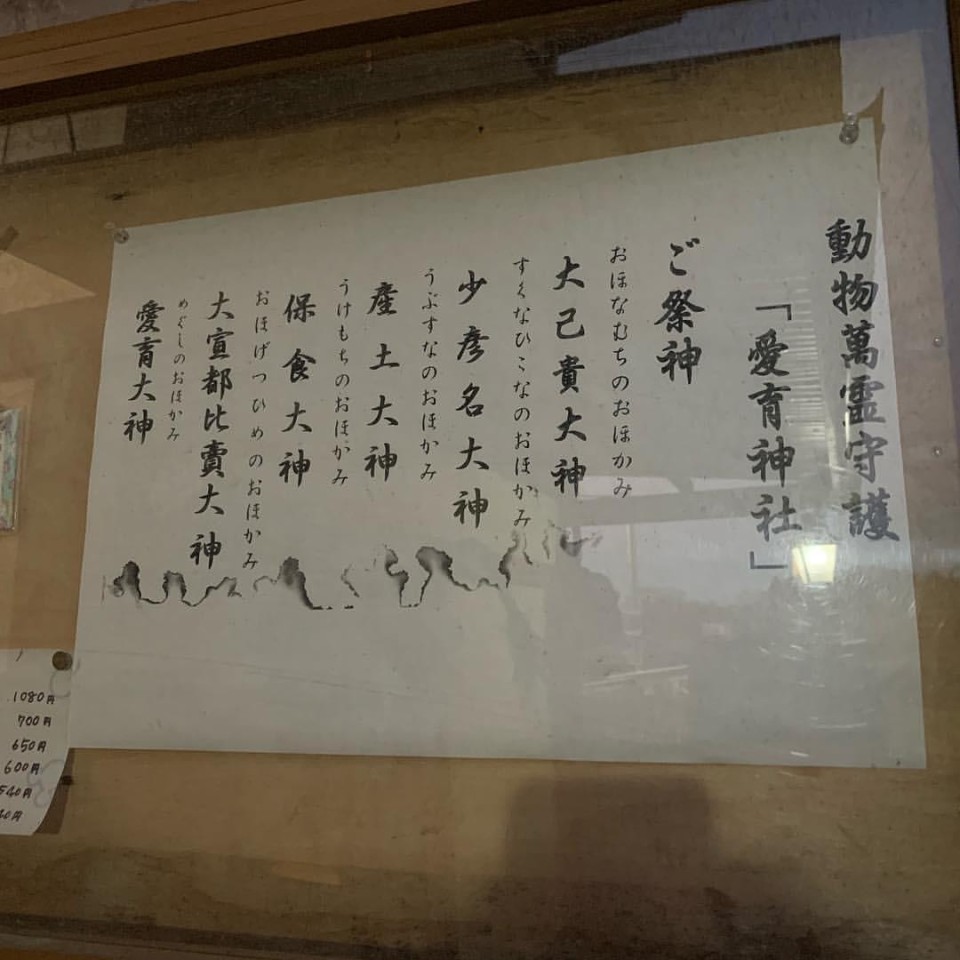 動物萬霊守護
「愛育神社」
ご祭神
おほなむちのおほかみ
大己貴大神
すくなひこなのおほかみ
少彦名大神
うぶすなのおほかみ
産土大神
うけもちのおほかみ
保食大神
おほげつひめのおほかみ
大宣都比賣大神
めぐしのおほかみ
愛育大神
1080円
700円
650円
600円
540円